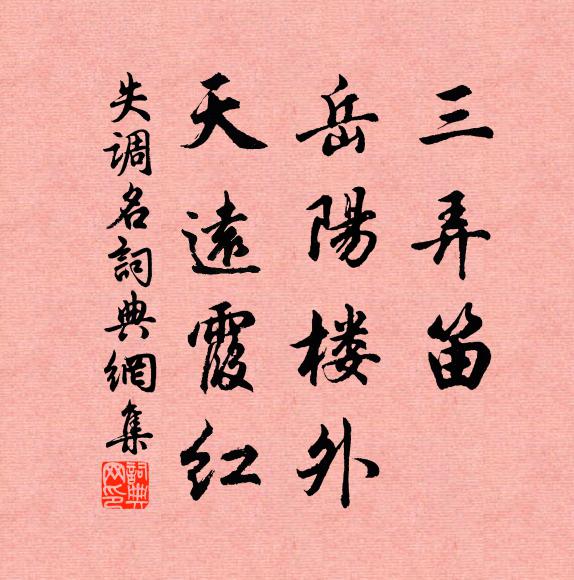 三弄笛
岳陽楼外
天遠霞红
失调名詞典網集
詞典網印